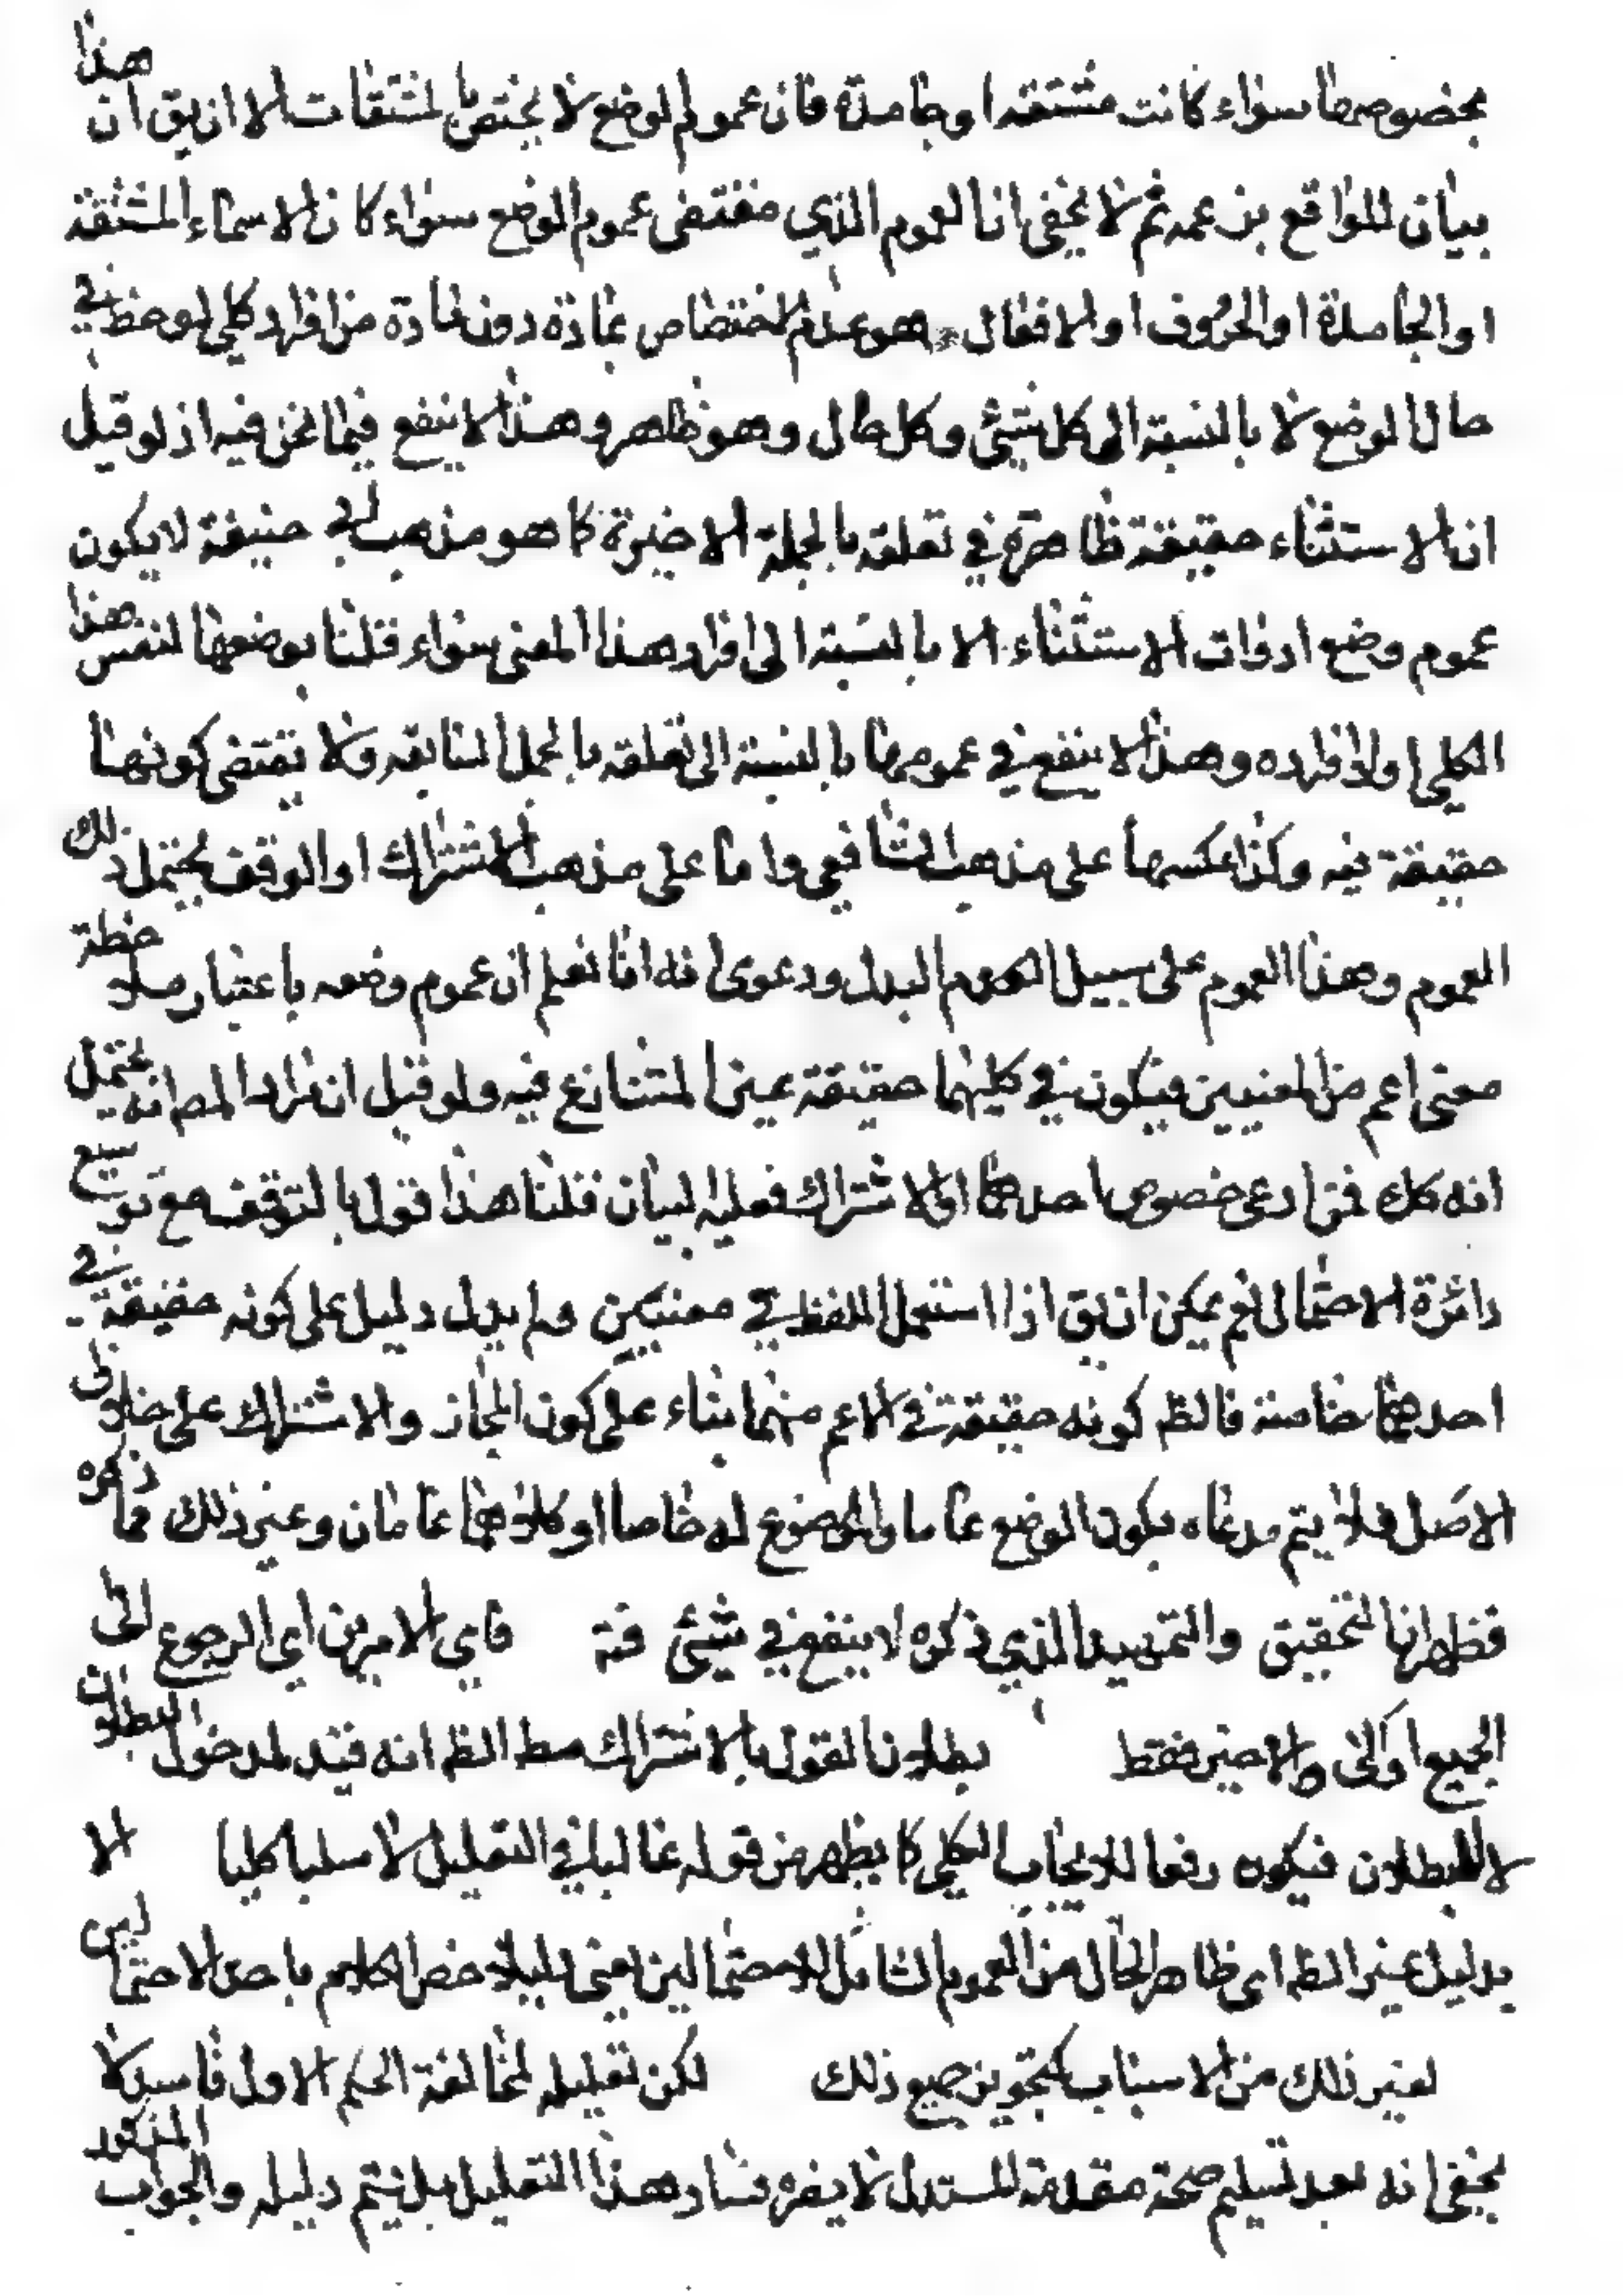 بخصوصها سواء كانت مشتقة او جامدة فان عموم الوضع لا يختص بالمشتقات الا ان يق ان هذا
بيان للواقع بزعمه ثم لا يخفى ان العموم الذي مقتضى عموم الوضع سواء كان الاسماء المشتقة
او الجامدة او الحروف او الافعال هو عدم الاختصاص بمادة دون مادة من افراد كلي لوحظ في
حال الوضع لا بالنسبة الى كل شيئ وكل حال وهو ظاهر وهذا لا ينفع فيما نحن فيه اذ لو قيل
ان الاستثناء حقيقة ظاهرة في تعلقه بالجملة الاخيرة كما هو مذهب ابي حنيفة لا يكون
عموم وضع ادوات الاستثناء الا بالنسبة الى افراد هذا المعنى سواء قلنا بوضعها لنفس هذا
الكلي او لافراده وهذا لا ينفع في عمومها بالنسبة الى تعلقه بالجمل السابقه ولا يقتضى كونها
حقيقة فيه وكذا عكسها على مذهب الشافعي واما على مذهب الاشتراك او الوقف يحتمل ذلك
العموم وهذا العموم على سبيل العموم البدل ودعوى انه انا نعلم ان عموم وضعه باعتبار ملاحظة
معنى اعم من المعنيين فيكون في كليهما حقيقة عين المتنازع فيه ولو قيل ان مراد المص انه يحتمل
انه كك فمن ادعى خصوص احدهما او الاشتراك فعليه البيان قلنا هذا قول بالتوقف مع توسيع
دائرة الاحتمال نعم يمكن ان يق اذا استعمل اللفظ في معنيين ولم يدل دليل على كونه حقيقة في
احدهما خاصة فالظ كونه حقيقة في الاعم منهما بناء على كون المجاز والاشتراك على خلاف
الاصل فلا يتم مدعاه بكون الوضع عاما والموضوع له خاصا او كلاهما عامان وغير ذلك مما ذكره
فظهر ان التحقيق والتمهيد الذي ذكره لا ينفع في شيئ فاي الامرين اي الرجوع الى
الجميع او الى الاخير فقط بطلان القول بالاشتراك مط الظ انه قيد لمدخول البطلان
لا للبطلان فيكون رفعا للايجاب الكلي كما يظهر من قوله غالبا في التعليل لا سلبا كليا الا
بدليل غير الظ اى ظاهر الحال من العموم الشامل للاحتمالين يعنى دليلا خص الكلام باحد الاحتمالين
لغير ذلك من الاسباب كتجويز جميع ذلك لكن تعليله لمخالفة الحكم الاول فاسد لا
يخفى انه بعد تسليم صحة مقدمة المستدل لا يضره فساد هذا التعليل بل يتم دليله والجواب المذكور